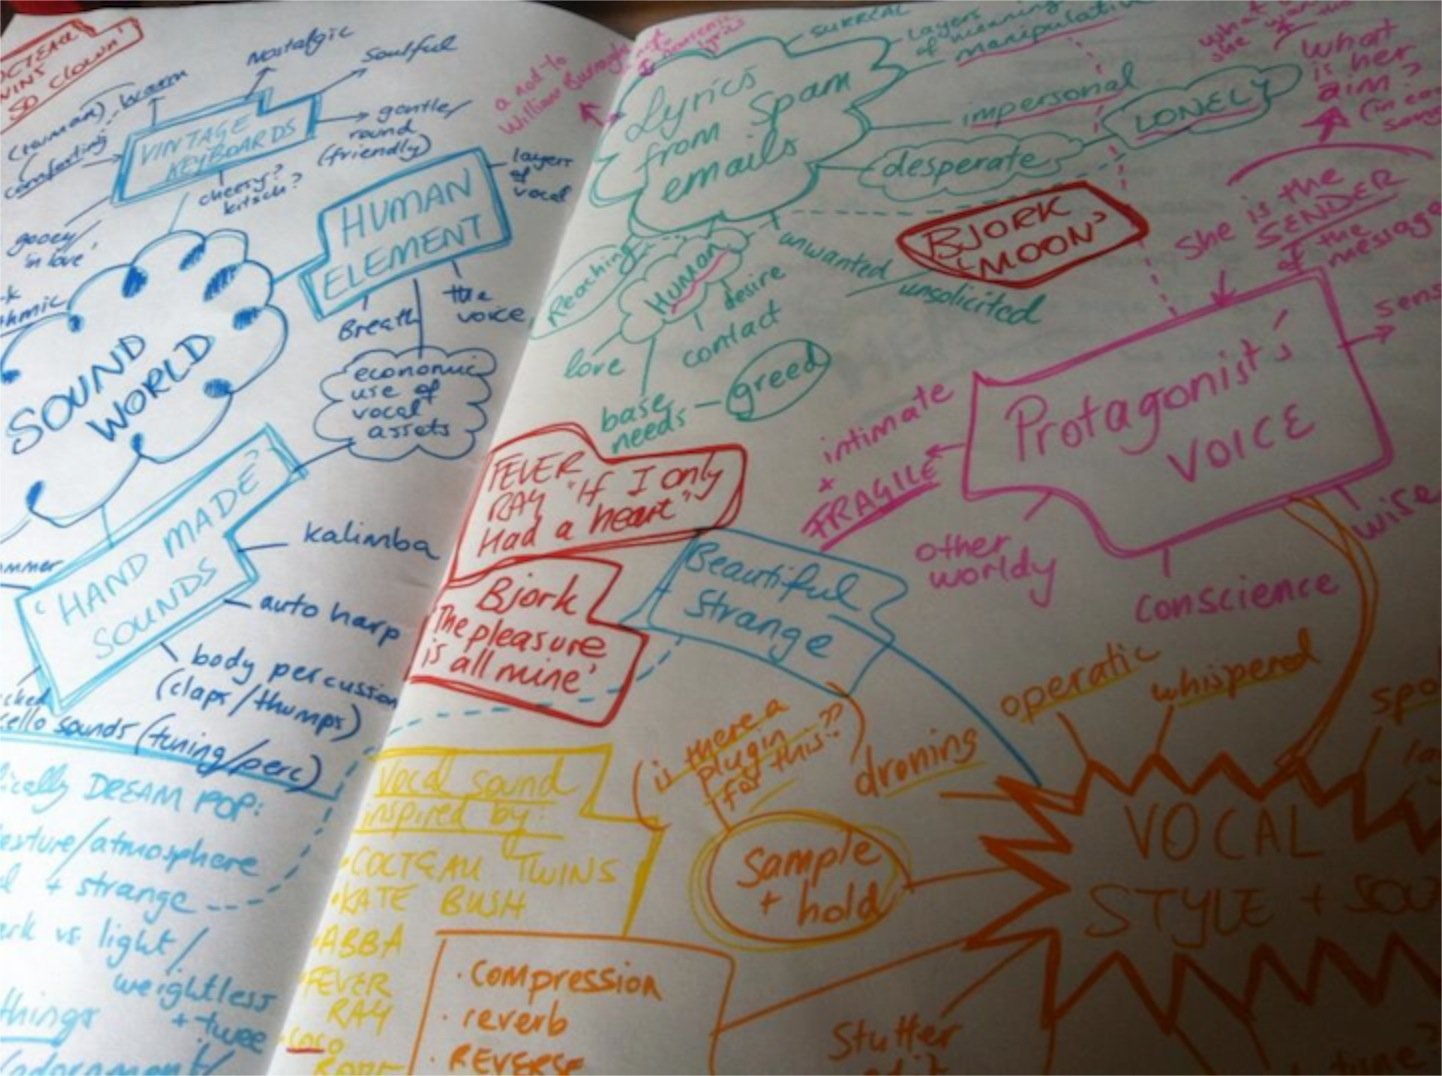 TWINS
SO CLOWN'
Nostalgic
Soulful
(human) warm
comforting
VINTAGE
KEYBOARDS
gentle/
round
(friendly)
cheesy?
kitsch?
gooey/
'in love'
HUMAN
ELEMENT
layers
of
vocal
Breath
the
voice
economic
use of
vocal
assets
SOUND
WORLD
'HAND MADE'
SOUNDS
kalimba
auto harp
body percussion
(claps/thumps)
cello sounds (tuning/perc)
DREAM POP:
/atmosphere
+ strange
vs light/
weightless
+ twee
things
adornment/
a nod to
William Burroughs
Lyrics
from Spam
emails
SURREAL
layers
of meaning
manipulative
impersonal
desperate
LONELY
what
is her
aim?
BJORK
'MOON'
unwanted
unsolicited
Reaching
HUMAN
desire
contact
love
base
needs
greed
She is the
SENDER
of the
message
Protagonist's
VOICE
intimate
+
FRAGILE
other
worldy
conscience
wise
FEVER
RAY "If I only
Had a heart"
Bjork
'The pleasure
is all mine'
Beautiful
+ strange
Vocal sound
inspired by:
• COCTEAU TWINS
• KATE BUSH
• ABBA
• FEVER
RAY
• COCO
(is there a
plugin
for this??)
droning
operatic
whispered
sample
+ hold
VOCAL
STYLE +
• COMPRESSION
• reverb
• REVERSE
Stutter